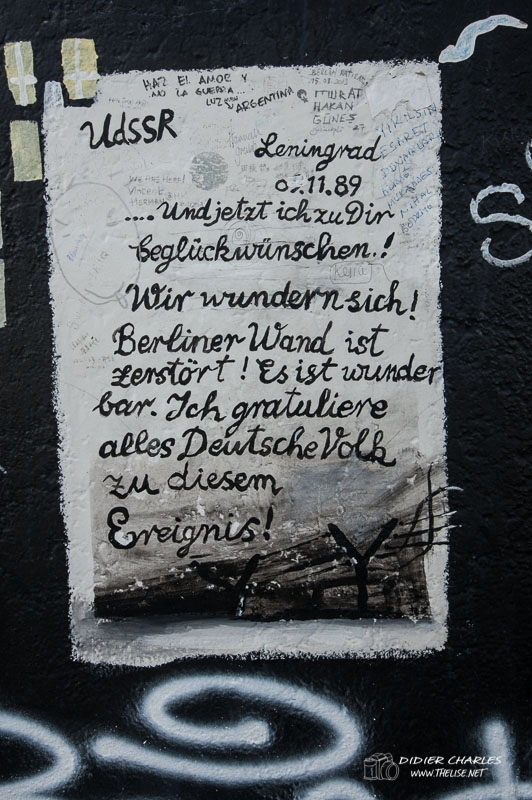 HAZ EL AMOR Y
NO LA GUERRA...
LUZ ARGENTINA
MURAT
HAKAN
GÜNEŞ
UdSSR
Leningrad
.11.89
.... Und jetzt ich zu Dir
beglückwünschen.!
Wir wundern sich!
Berliner Wand ist
zerstört! Es ist wunder
bar. Ich gratuliere
alles Deutsche Volk
zu diesem
Ereignis!
DIDIER CHARLES
WWW.THELISE.NET